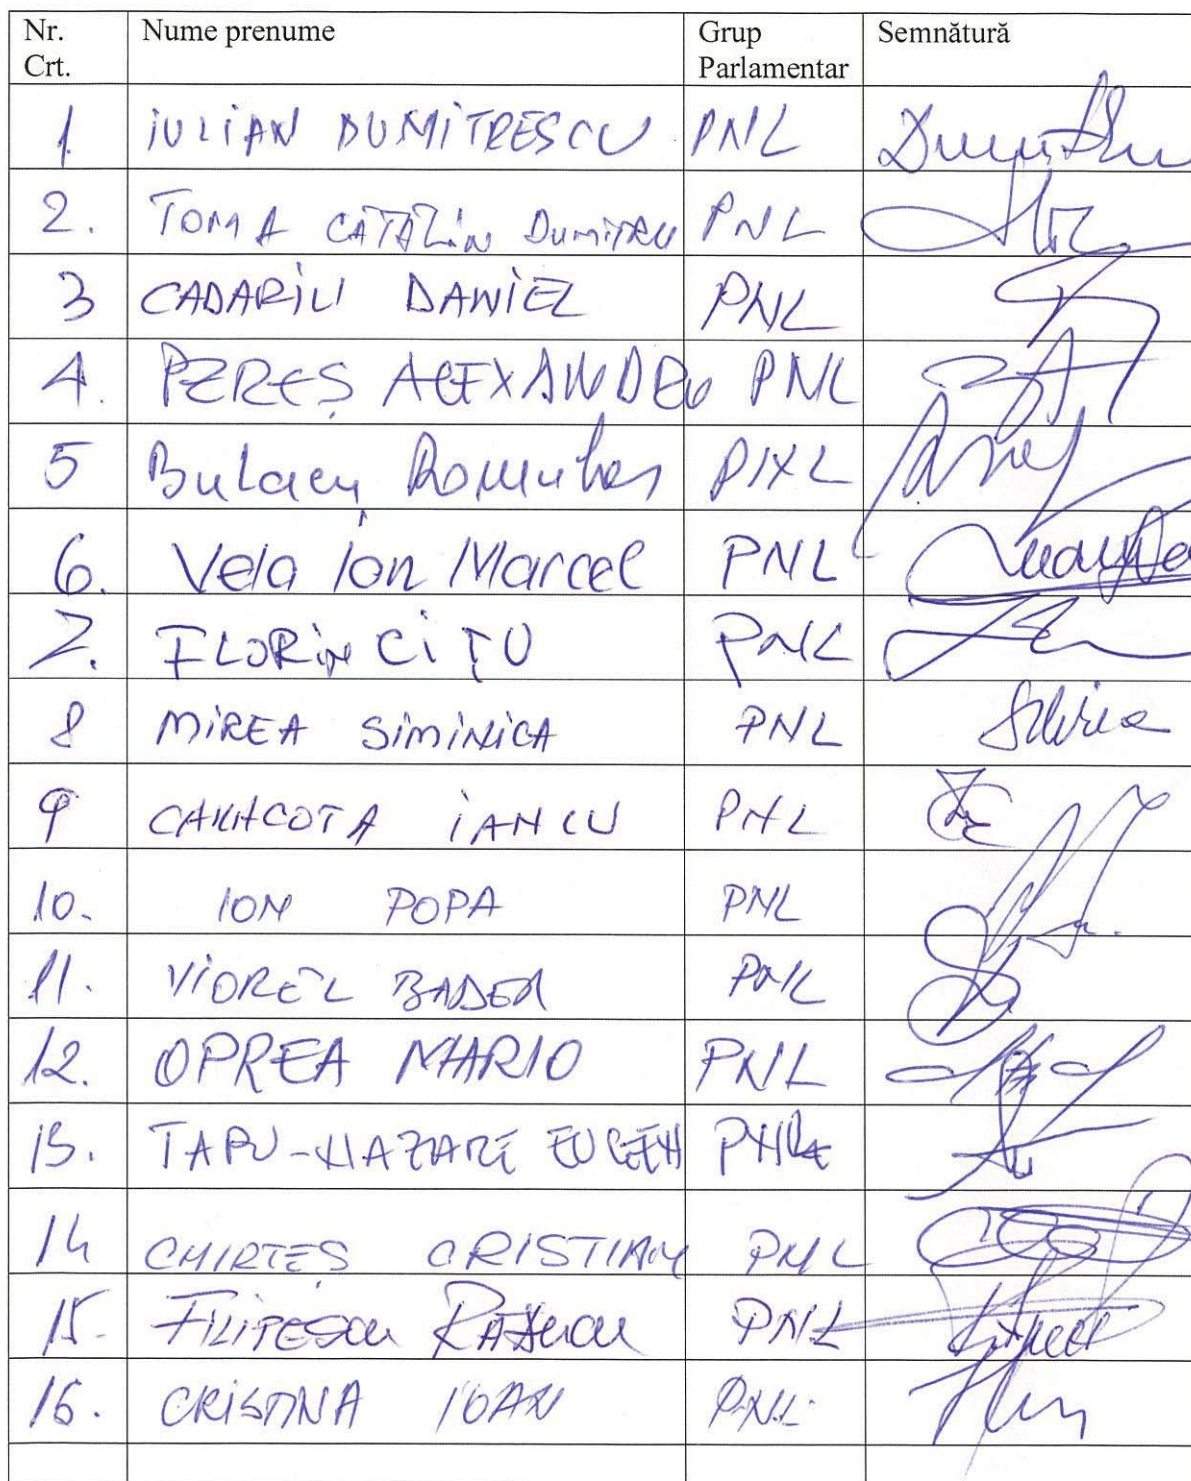 Nr. Crt. Nume prenume Grup Parlamentar Semnătură
1 IULIAN DUMITRESCU PNL
2. TOMA CĂTĂLIN DUMITRU PNL
3 CADARIU DANIEL PNL
4. PEREȘ ALEXANDRU PNL
5 Bulacu Romulus PNL
6. Vela Ion Marcel PNL
7. FLORIN CÎȚU PNL
8 MIREA SIMINICA PNL
9 CARACOTA IANCU PNL
10. ION POPA PNL
11. VIOREL BADEA PNL
12. OPREA MARIO PNL
13. TAPU-NAZARE EUGEN PNL
14 CHIRTEȘ CRISTIAN PNL
15. FILIPESCU RĂDUCU PNL
16. CRISTINA IOAN PNL